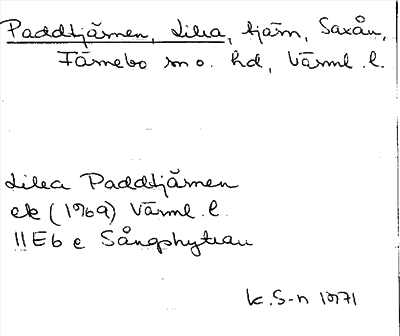 Paddtjärnen, Lilla, tjärn, Saxån,
Färnebo sn o. hd, Värml. l.
Lilla Paddtjärnen
ek (1969) Värml. l.
11E6 e Sångshyttan
K. S-n 1971